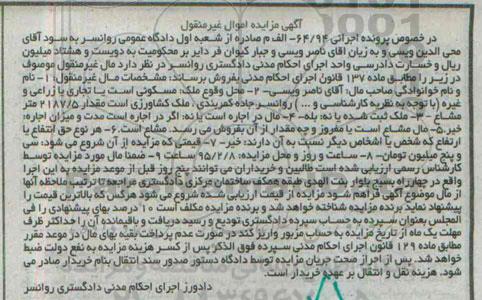 آگهی مزایده اموال غیرمنقول
در خصوص پرونده اجرائی ۶۴/۹۴- الف م صادره از شعبه اول دادگاه عمومی روانسر به سود آقای
محی الدین ویسی و به زیان اقای ناصر ویسی و جبار کیوان فر دایر بر محکومیت به دویست و هشتاد میلیون
ریال و خسارت دادرسی واحد اجرای احکام مدنی دادگستری روانسر در نظر دارد مال غیرمنقول موصوف
در زیر را مطابق ماده ۱۳۷ قانون اجرای احکام مدنی بفروش برساند: مشخصات مال غیرمنقول: ۱- نام
و نام خوانوادگی صاحب مال: آقای ناصر ویسی- ۲- محل وقوع ملک: مسکونی است یا تجاری یا زراعی و
غیره (با توجه به نظریه کارشناسی و ... ) روانسر جاده کمربندی . ملک کشاورزی است مقدار ۲۱۸۷/۵ متر
مشاع -۳- ملک ثبت شده یا نه: بله- ۴- مال در اجاره است یا نه: اگر در اجاره است مدت و میزان اجاره:
خیر.۵- مال مشاع است یا مفروز و چه مقدار از آن بفروش می رسد. مشاع است.۶- هر نوع حق انتفاع یا
ارتفاع که شخص یا اشخاص دیگر نسبت به آن دارند: خیر- ۷- قیمتی که مزایده از آن شروع می شود: سی
و پنج میلیون تومان- ۸- ساعت و روز و محل مزایده: ۹۵/۲/۸ ساعت ۹- ضمنا مال مورد مزایده توسط
کارشناس رسمی ارزیابی شده است طالبین و خریداران می توانند پنج روز قبل از موعد مزایده به این اجرا
واقع در چهارراه بسیج بلوار بنت الهدی طبقه همکف ساختمان مرکزی دادگستری مراجعه تا ترتیب ملاحظه آنها
از مال موضوع آگهی فراهم شود مزایده از قیمت ارزیابی شده شروع می شود هرکس که بالاترین قیمت را
پیشنهاد نماید برنده مزایده شناخته خواهد شد و برنده مزایده مکلف است ده درصد بهای پیشنهادی را فی
المجلس بعنوان سپرده به حساب سپرده دادگستری تودیع و رسید دریافت و باقیمانده آن را حداکثر ظرف
مهلت یک ماه از تاریخ مزایده به حساب مزبور واریز کند در صورت عدم پرداخت بقیه بهای مال در موعد مقرر
مطابق ماده ۱۲۹ قانون اجرای احکام مدنی سپرده فوق الذکر پس از کسر هزینه مزایده به نفع دولت ضبط
خواهد شد. پس از احراز صحت جریان مزایده توسط دادگاه دستور صدور سند انتقال بنام خریدار صادر می
شود. هزینه نقل و انتقال بر عهده خریدار است.
دادورز اجرای احکام مدنی دادگستری روانسر